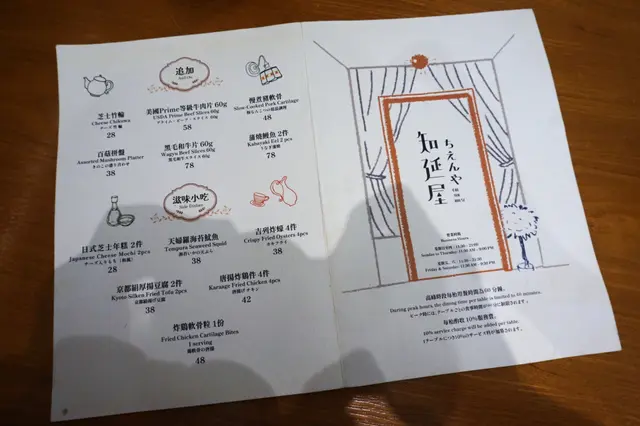 追加
Add-On
芝士竹輪
Cheese Chikuwa
チーズ竹輪
28
美國Prime等級牛肉片 60g
USDA Prime Beef Slices 60g
プライム・ビーフ・スライス 60g
58
慢煮豬軟骨
Slow-Cooked Pork Cartilage
48
百菇拼盤
Assorted Mushroom Platter
きのこの盛り合わせ
38
黑毛和牛片 60g
Wagyu Beef Slices 60g
黒毛和牛スライス 60g
78
蒲燒鰻魚 2件
Kabayaki Eel 2 pcs
うなぎ蒲焼
78
滋味小吃
Side Dishes
日式芝士年糕 2件
Japanese Cheese Mochi 2 pcs
28
天婦羅海苔魷魚
Tempura Seaweed Squid
38
吉列炸蠔 4件
Crispy Fried Oysters 4 pcs
カキフライ
38
京都絹厚揚豆腐 2件
Kyoto Silken Fried Tofu 2pcs
京都絹揚げ豆腐
38
唐揚炸雞件 4件
Karaage Fried Chicken 4 pcs
42
炸雞軟骨粒 1份
Fried Chicken Cartilage Bites
1 serving
鶏軟骨の唐揚
48
知延屋
ちえんや
營業時間
Business Hours
高峰時段每枱用餐時間為60分鐘。
During peak hours, the dining time per table is limited to 60 minutes.
每枱酌收 10%服務費。
10% service charge will be added per table.
1テーブルにつき10%のサービス料が加算されます。